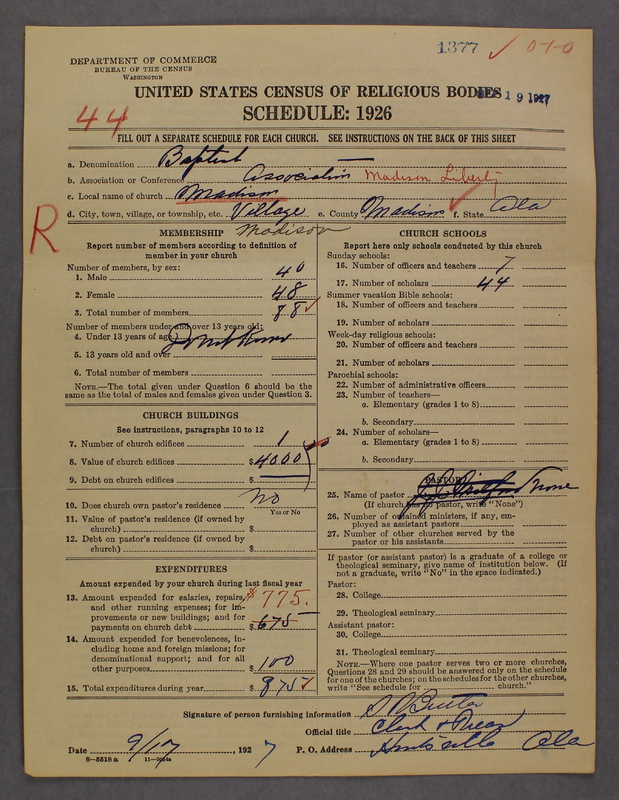 1377 ✓ 0-1-0
DEPARTMENT OF COMMERCE
BUREAU OF THE CENSUS
WASHINGTON
UNITED STATES CENSUS OF RELIGIOUS BODIES
19 1927
44
SCHEDULE: 1926
FILL OUT A SEPARATE SCHEDULE FOR EACH CHURCH. SEE INSTRUCTIONS ON THE BACK OF THIS SHEET
a. Denomination Baptist
b. Association or Conference Association Madison Liberty
c. Local name of church Madison
d. City, town, village, or township, etc. Village e. County Madison f. State Ala
R
MEMBERSHIP Madison
Report number of members according to definition of
member in your church
Number of members, by sex:
1. Male 40
2. Female 48
3. Total number of members 88 ✓
Number of members under and over 13 years old:
4. Under 13 years of age Do not Know
5. 13 years old and over
6. Total number of members
NOTE.—The total given under Question 6 should be the
same as the total of males and females given under Question 3.
CHURCH BUILDINGS
See instructions, paragraphs 10 to 12
7. Number of church edifices 1
8. Value of church edifices $4000
9. Debt on church edifices $
10. Does church own pastor's residence no
Yes or No
11. Value of pastor's residence (if owned by
church) $
12. Debt on pastor's residence (if owned by
church) $
EXPENDITURES
Amount expended by your church during last fiscal year
13. Amount expended for salaries, repairs, $775.
and other running expenses; for im-
provements or new buildings; and for
payments on church debt $675
14. Amount expended for benevolences, in-
cluding home and foreign missions; for
denominational support; and for all
other purposes $100
15. Total expenditures during year $875 ✓
CHURCH SCHOOLS
Report here only schools conducted by this church
Sunday schools:
16. Number of officers and teachers 7
17. Number of scholars 44
Summer vacation Bible schools:
18. Number of officers and teachers
19. Number of scholars
Week-day religious schools:
20. Number of officers and teachers
21. Number of scholars
Parochial schools:
22. Number of administrative officers
23. Number of teachers—
a. Elementary (grades 1 to 8)
b. Secondary
24. Number of scholars—
a. Elementary (grades 1 to 8)
b. Secondary
PASTOR
25. Name of pastor None
(If church has no pastor, write "None")
26. Number of ordained ministers, if any, em-
ployed as assistant pastors
27. Number of other churches served by the
pastor or his assistants
If pastor (or assistant pastor) is a graduate of a college or
theological seminary, give name of institution below. (If
not a graduate, write "No" in the space indicated.)
Pastor:
28. College
29. Theological seminary
Assistant pastor:
30. College
31. Theological seminary
NOTE.—Where one pastor serves two or more churches,
Questions 28 and 29 should be answered only on the schedule
for one of the churches; on the schedules for the other churches,
write "See schedule for church."
Signature of person furnishing information
Official title Clerk & Treas
Date 9/17, 1927 P. O. Address Huntsville Ala
8—5518 a